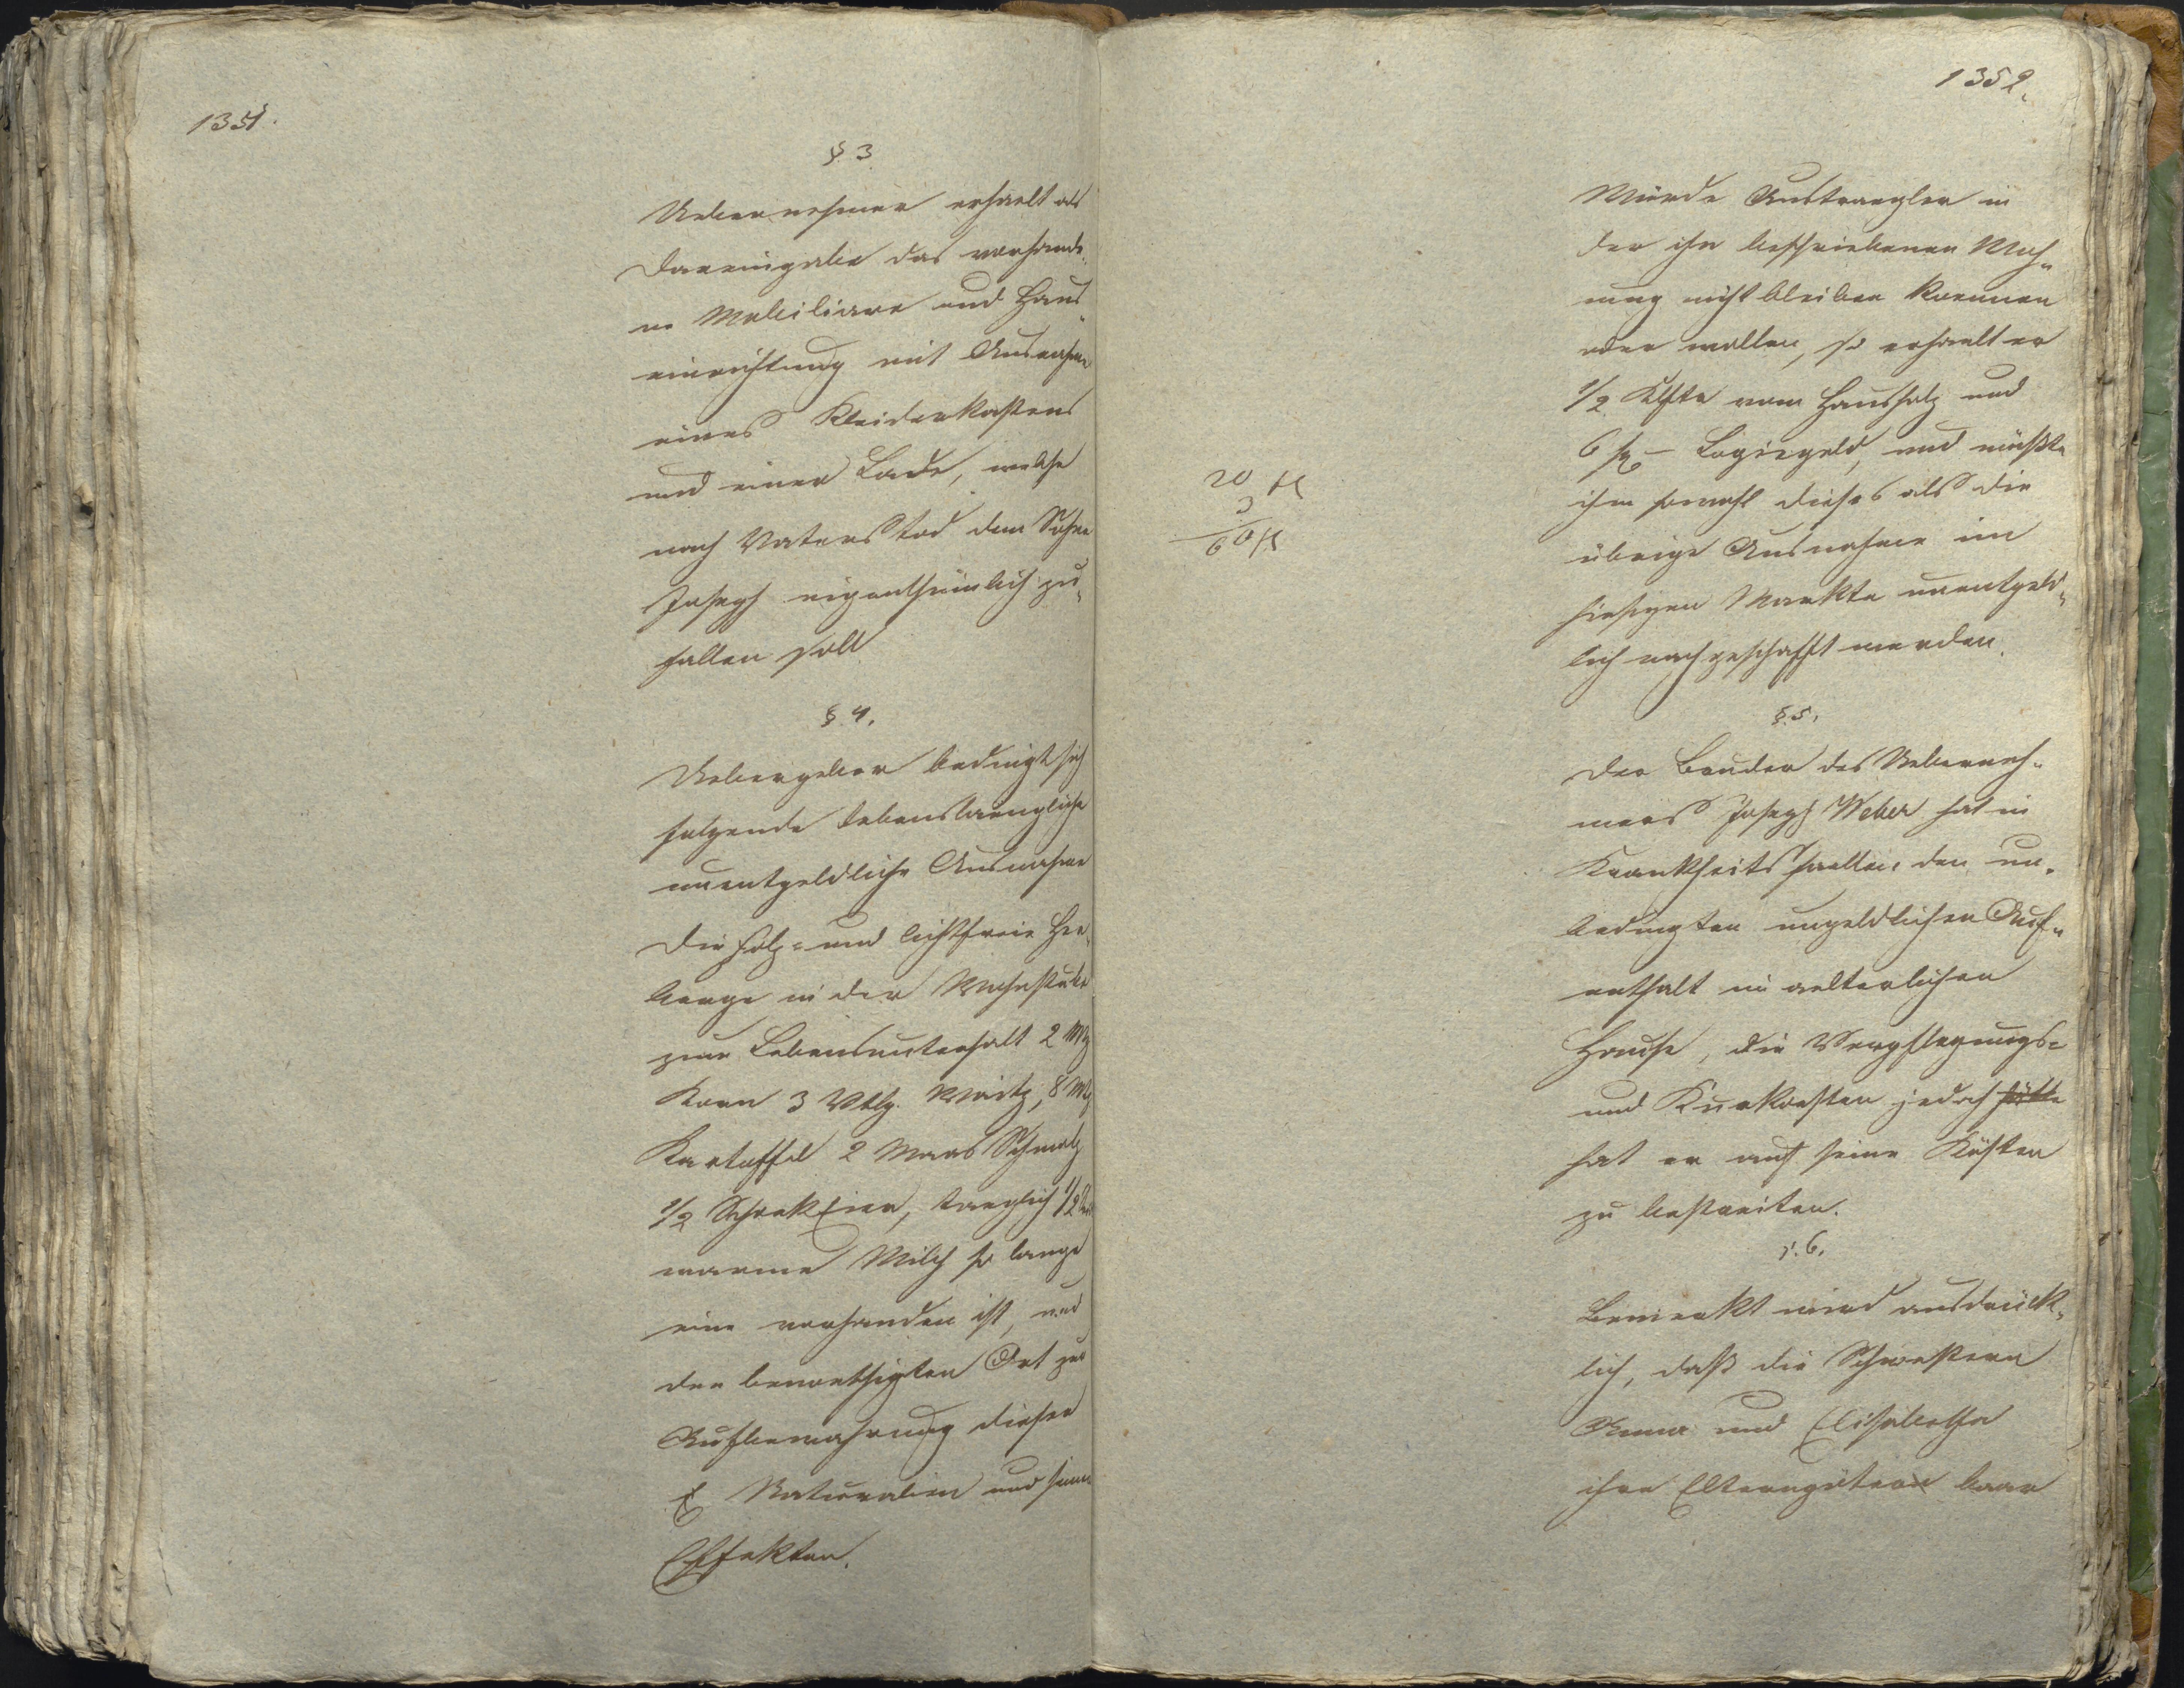 1351.
§ 3
Uebernehmer erhaelt als
Dareingabe das vorhande„
ne Mobiliare und Haus„
einrichtung mit Ausnahme
eines Kleiderkastens
und einer Lade, welche
nach Vaters Tod dem Sohne
Joseph eigenthümlich zu„
fallen soll
§. 4.
Uebergeber bedingt sich
folgende lebenslaengliche
unentgeldliche Ausnahme
die holz- und lichtfreie Her„
berge in der Wohnstube
zum Lebensunterhalt 2 Mtz
Korn 3 Vtlg. Waitz, 8 Mtz
Kartoffel 2 Maas Schmalz
1/2 Schock Eier, taeglich 1/2
warme Milch so lange
eine vorhanden ist, und
den benoethigten Ort zur
Aufbewahrung dieser
Naturalien und seiner
Effekten.
1352.
Würde Austraegler in
der ihm beschriebenen Woh„
nung nicht bleiben koennen
oder wollen, so erhaelt er
1/2 Klftr vom Hausholz und
6 fl – Logisgeld, und müßte
ihm sowohl dieses als die
übrige Ausnahme im
hiesigen Markte unentgeld„
lich nachgeschafft werden.
20 fl
3
60 fl
§. 5.
Der Bruder des Ueberneh„
mers Joseph Weber hat in
Krankheitsfaellen den un„
bedingten ungeldlichen Auf„
enthalt im aelterlichen
Hause, die Verpflegungs-
und Kurkosten jedoch hätte
hat er auf seine Kösten
zu bestreiten.
§. 6.
Bemerkt wird ausdrück„
lich, daß die Schwestern
Anna und Elisabetha
ihre Elterngüter baar